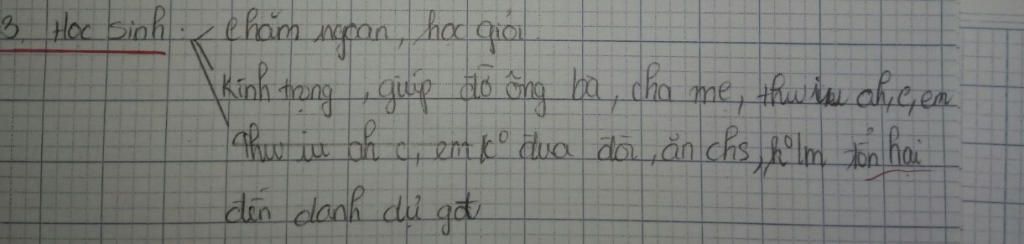 3. Học sinh: chăm ngoan, học giỏi.
Kính trọng, giúp đỡ ông bà, cha mẹ, thw iu ah, c, em
Thw iu ah c, em k° đua đòi, ăn chs, k° lm tổn hại
đến danh dự gđ